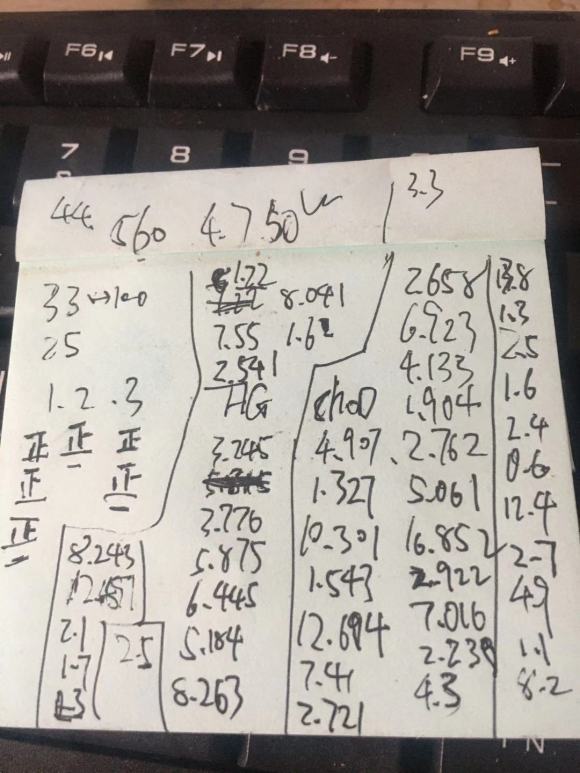 F6
F7
F8
F9
7
8
9
44.
560
4.750
3.3
33↔100
25
1.2.3
正 正 正
正 正
正
8.243
2.1
1.7
25
1.22
8.041
7.55
1.62
2.541
HG
3.245
3.776
5.875
6.445
5.184
8.263
choD
4.907
1.327
10.301
1.543
12.694
7.41
2.721
2.658
6.923
4.133
1.904
2.762
5.061
16.852
2.922
7.016
2.239
4.3
1.3
2.5
1.6
2.4
0.6
12.4
2.7
49
1.1
8.2
N